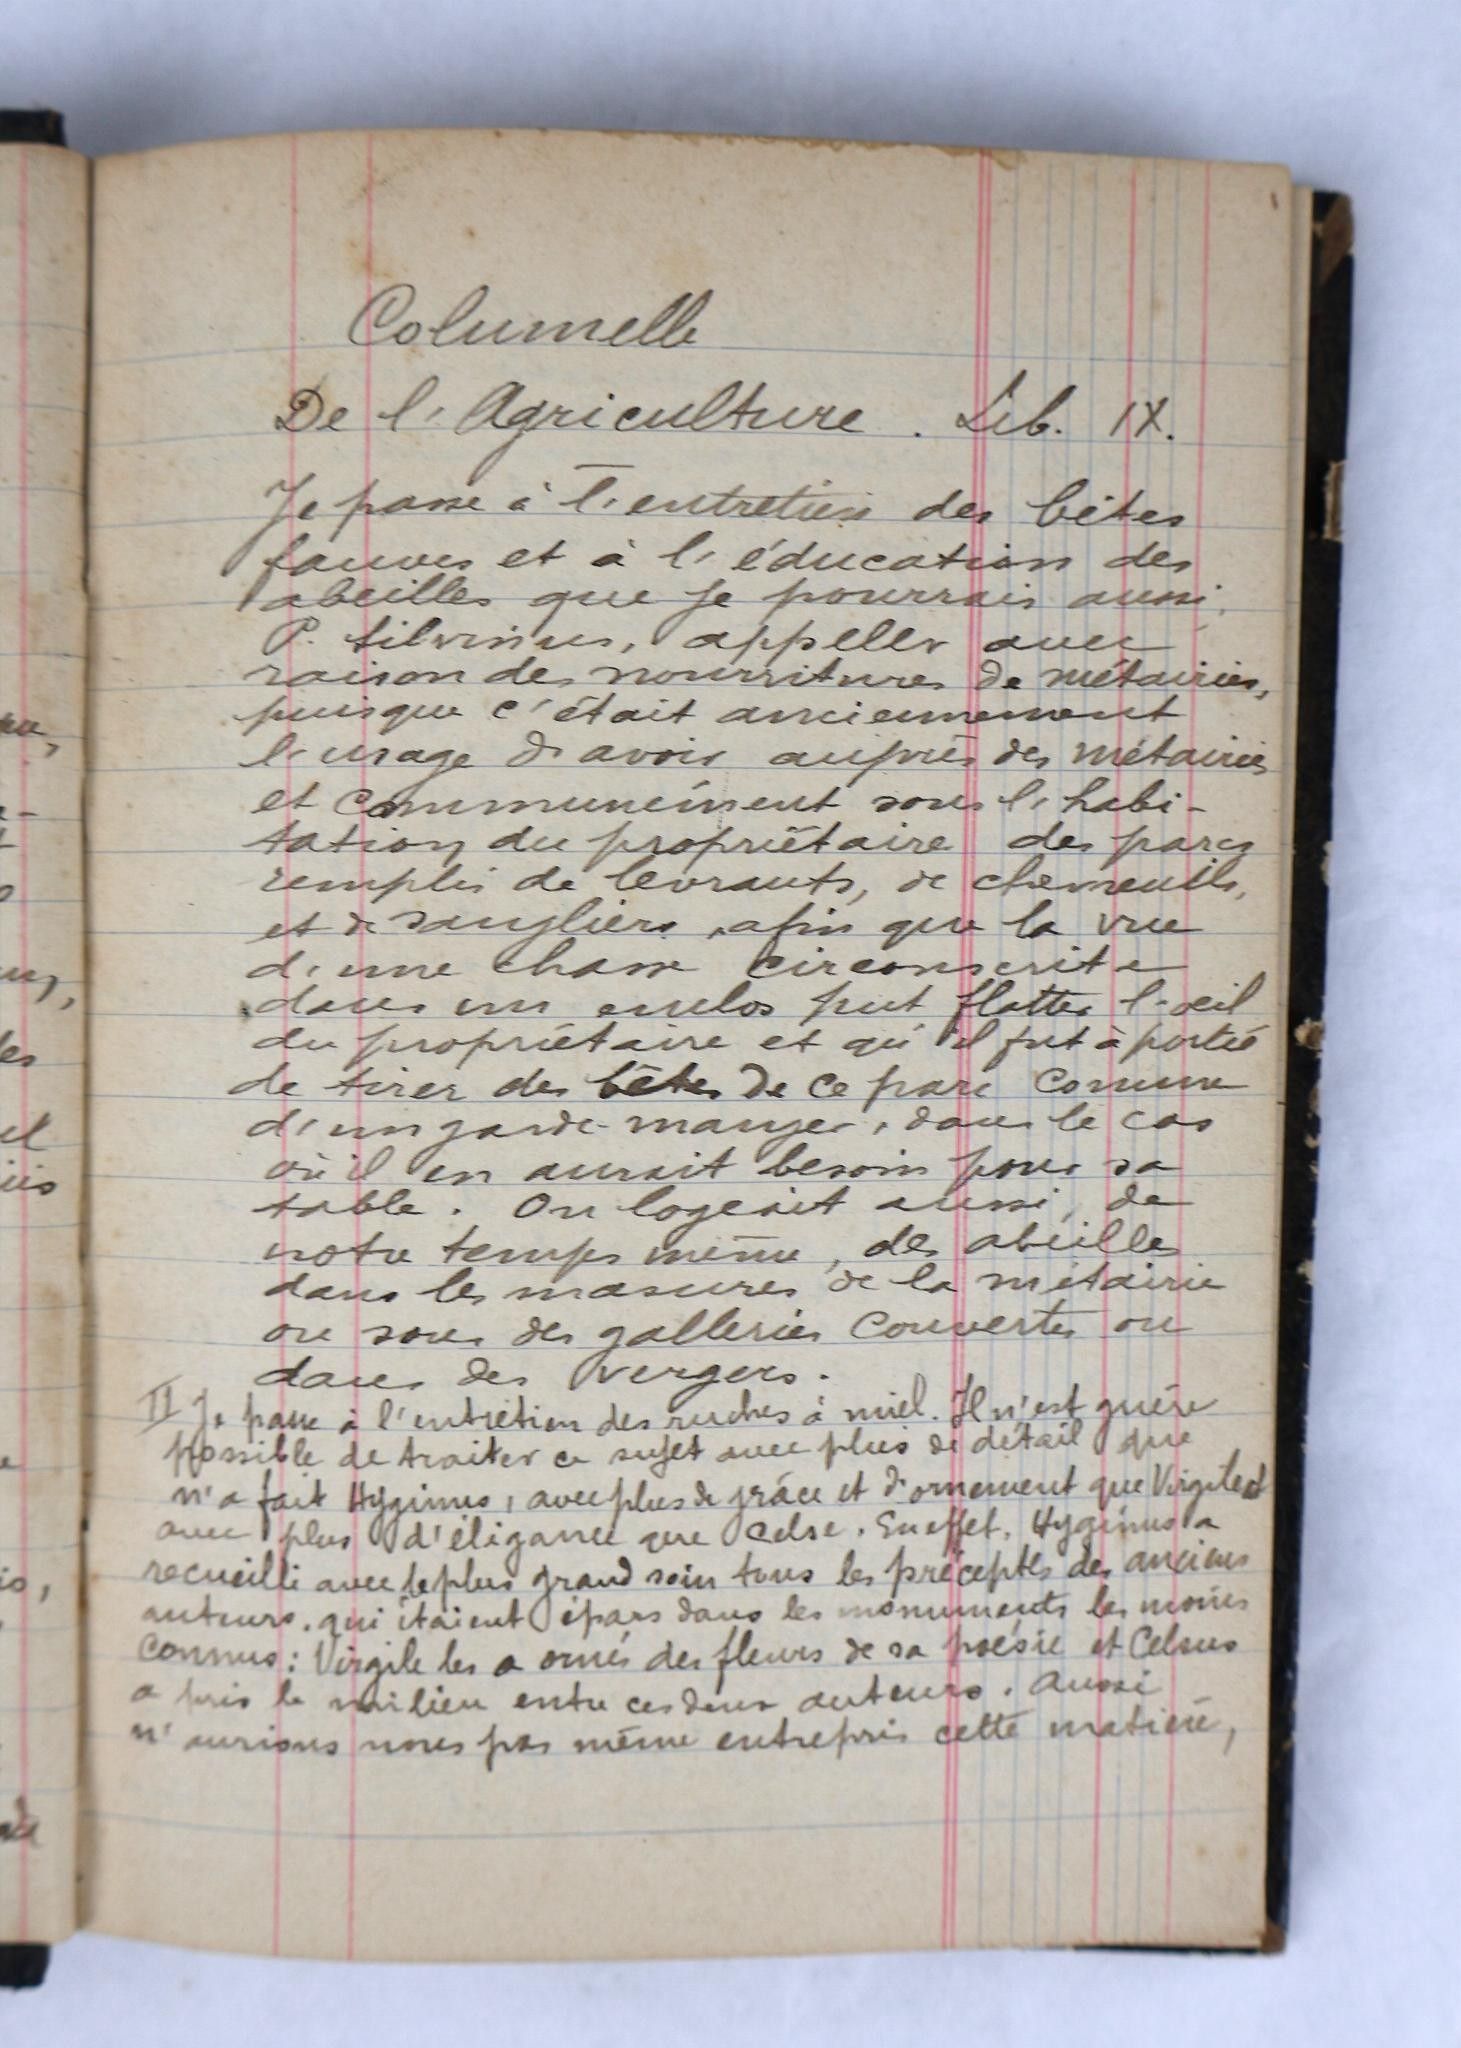 Columelle
De l'Agriculture. Lib. IX.
Je passe à l'entretien des bêtes
fauves et à l'éducation des
abeilles que je pourrais aussi,
P. Silvinus, appeller avec
raison des nourritures de métairies,
puisque c'était anciennement
l'usage d'avoir auprès des métairies
et communément sous l'habi-
tation du propriétaire des parcs
remplis de levrauts, de chevreuils,
et de sangliers, afin que la vue
d'une chasse circonscrite
dans un enclos put flatter l'œil
du propriétaire et qu'il fut à portée
de tirer des bêtes de ce parc comme
d'un garde-manger, dans le cas
où il en aurait besoin pour sa
table. On logeait aussi, de
notre temps même, des abeilles
dans les masures de la métairie
ou sous des galleries couvertes ou
dans des vergers.
II Je passe à l'entretien des ruches à miel. Il n'est guère
possible de traiter ce sujet avec plus de détail que
n'a fait Hyginus, avec plus de grâce et d'ornement que Virgile et
avec plus d'élégance que Celse. En effet, Hyginus a
recueilli avec le plus grand soin tous les préceptes des anciens
auteurs, qui étaient épars dans les monuments les moins
connus: Virgile les a ornés des fleurs de sa poésie et Celsus
a pris le milieu entre ces deux auteurs. Aussi
n'aurions nous pas même entrepris cette matière,
les